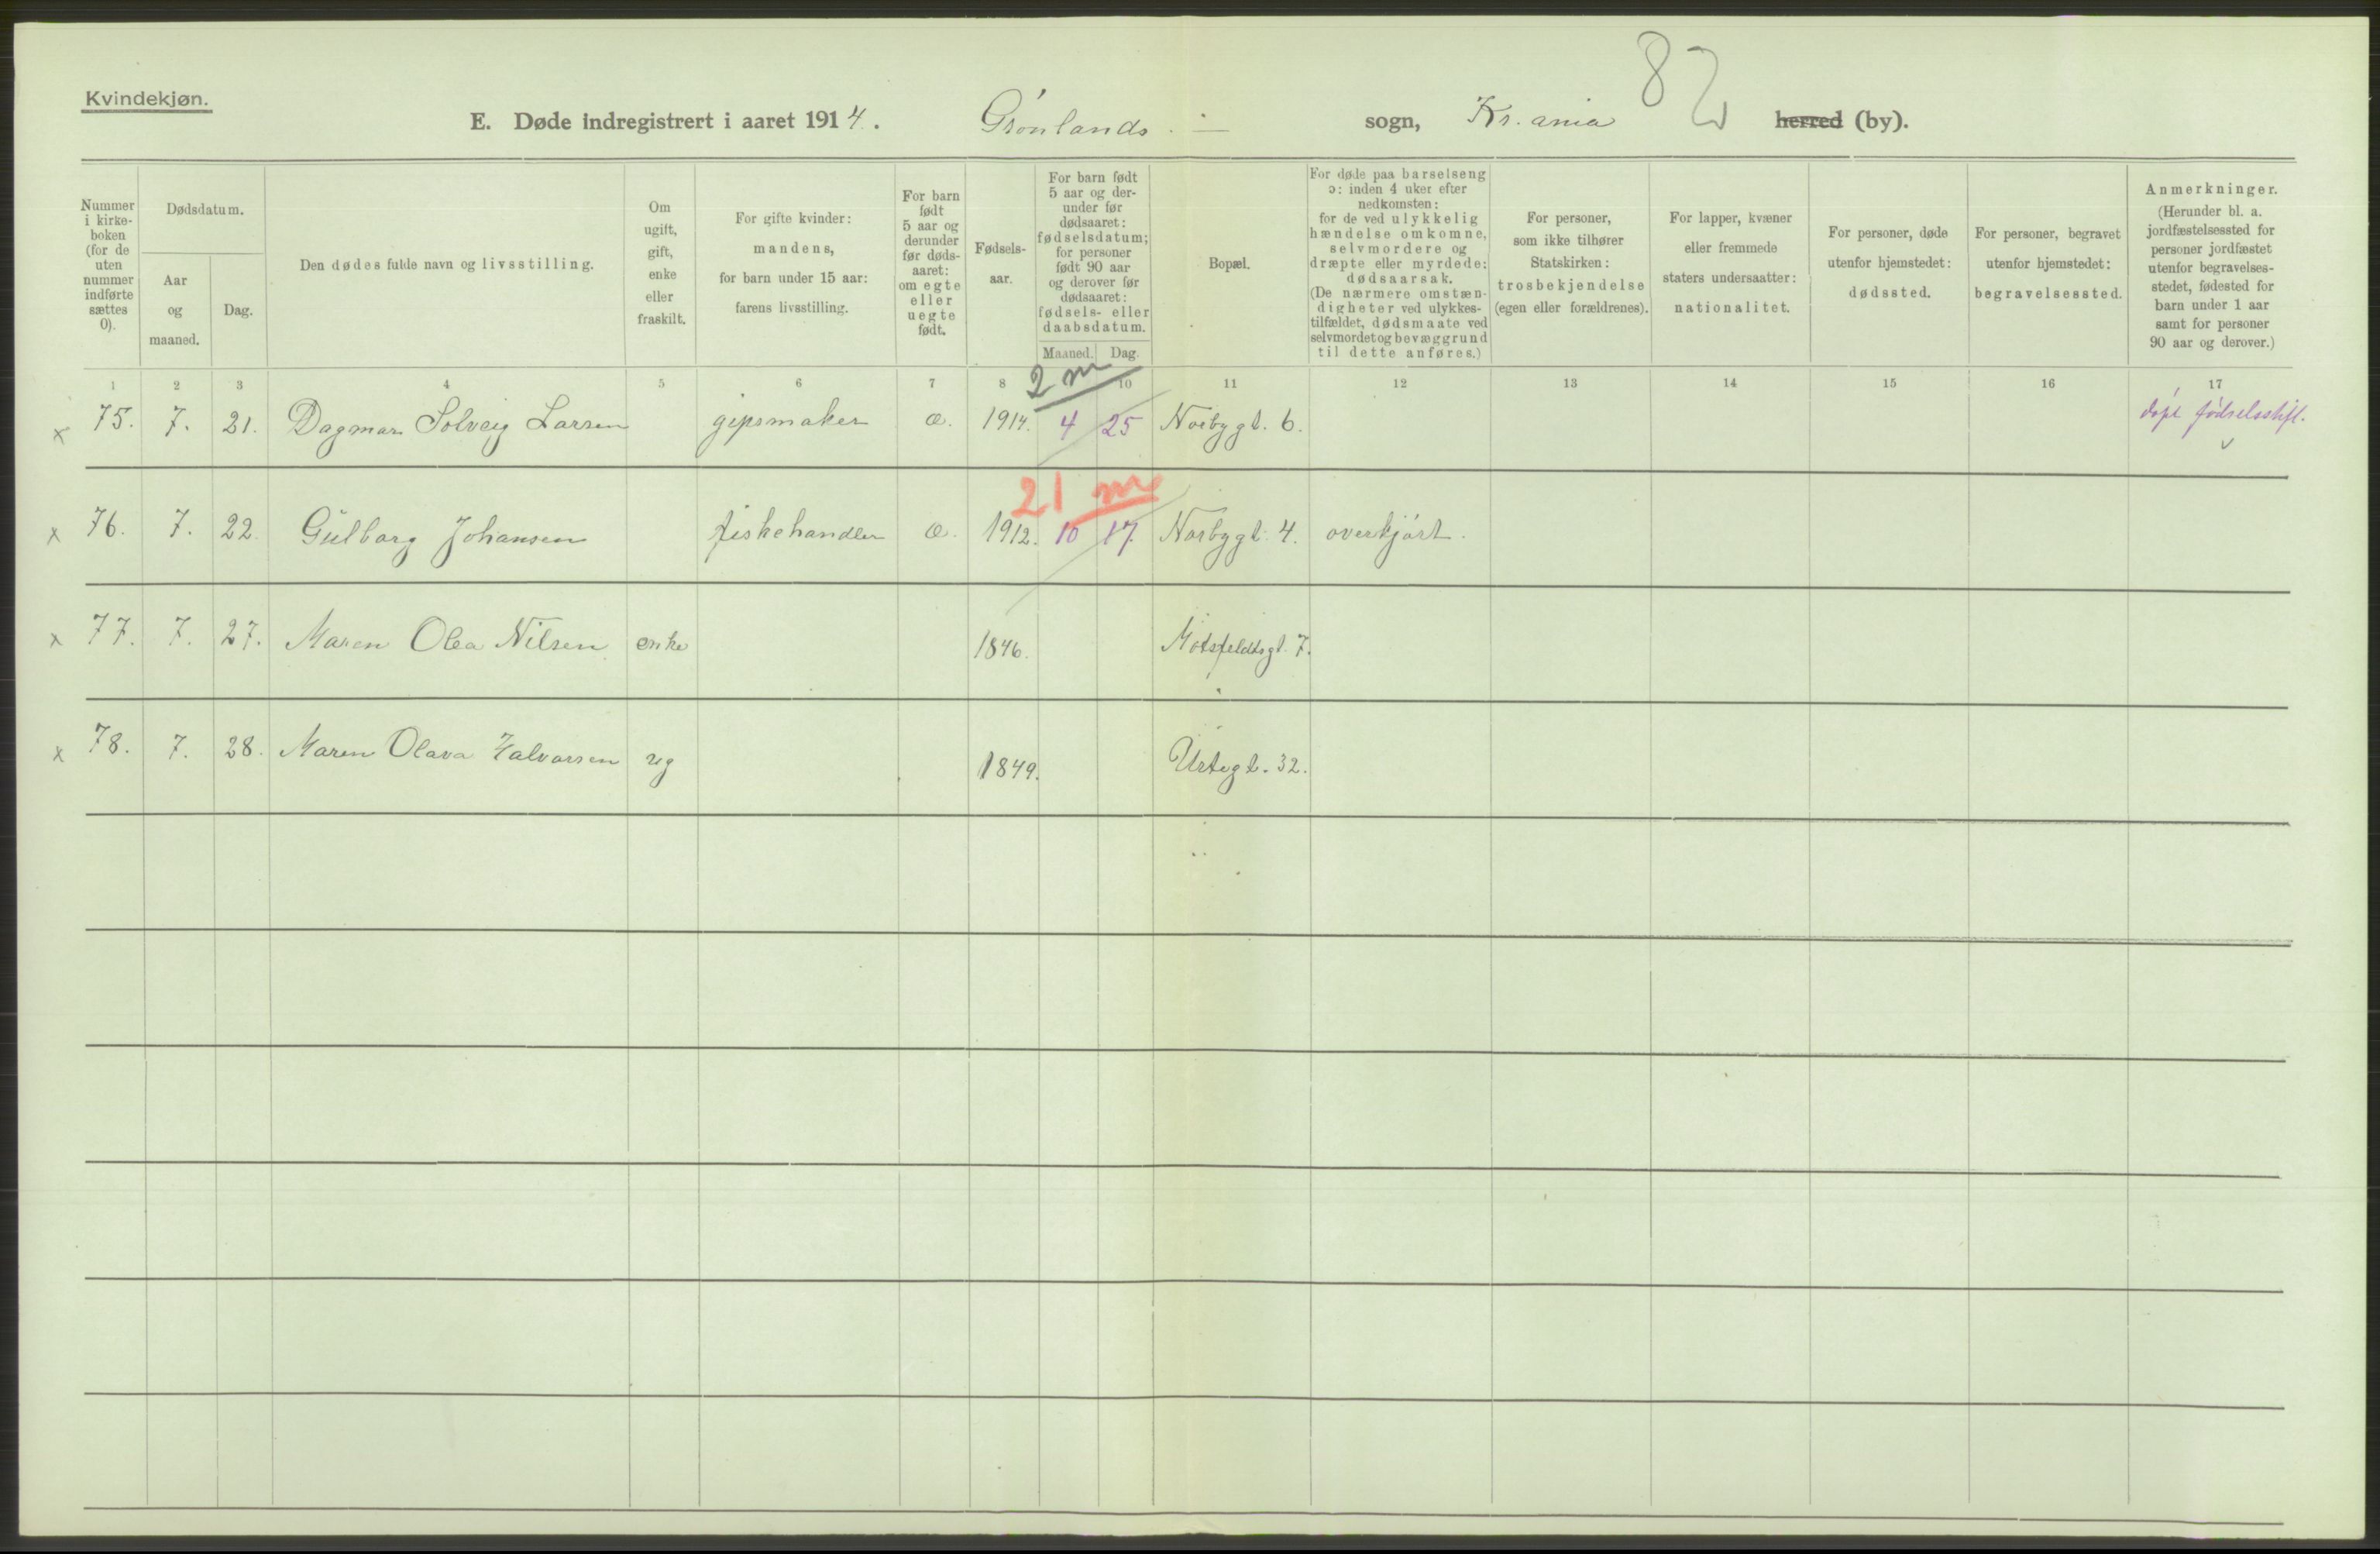 82
Kvindekjøn.
E. Døde indregistrert i aaret 1914. Grønlands sogn, Kr.ania herred (by).
Nummer i kirke-boken (for de uten nummer indførte sættes 0).
Dødsdatum.
Aar og maaned.
Dag.
Den dødes fulde navn og livsstilling.
Om ugift, gift, enke eller fraskilt.
For gifte kvinder: mandens, for barn under 15 aar: farens livsstilling.
For barn født 5 aar og derunder før døds-aaret: om egte eller uegte født.
Fødsels-aar.
For barn født 5 aar og der-under før dødsaaret: fødselsdatum; for personer født 90 aar og derover før dødsaaret: fødsels- eller daabsdatum.
Maaned. Dag.
Bopæl.
For døde paa barselseng ɔ: inden 4 uker efter nedkomsten: for de ved ulykkelig hændelse omkomne, selvmordere og dræpte eller myrdede: dødsaarsak. (De nærmere omstæn-digheter ved ulykkes-tilfældet, dødsmaate ved selvmordet og bevæggrund til dette anføres.)
For personer, som ikke tilhører Statskirken: trosbekjendelse (egen eller forældrenes).
For lapper, kvæner eller fremmede staters undersaatter: nationalitet.
For personer, døde utenfor hjemstedet: dødssted.
For personer, begravet utenfor hjemstedet: begravelsessted.
Anmerkninger. (Herunder bl. a. jordfæstelsessted for personer jordfæstet utenfor begravelses-stedet, fødested for barn under 1 aar samt for personer 90 aar og derover.)
1 2 3 4 5 6 7 8 10 11 12 13 14 15 16 17
2 m
x 75. 7. 21. Dagmar Solveig Larsen gipsmaker æ. 1914. 4 25 Norbygt. 6. døpt fødselsstift.
21 m
x 76. 7. 22. Gulborg Johansen fiskehandler æ. 1912. 10 17 Norbygt. 4. overkjørt.
x 77. 7. 27. Maren Olea Nilsen enke 1846. Motzfeldtsgt. 7.
x 78. 7. 28. Maren Olava Halvorsen ug 1849. Urtegt. 32.